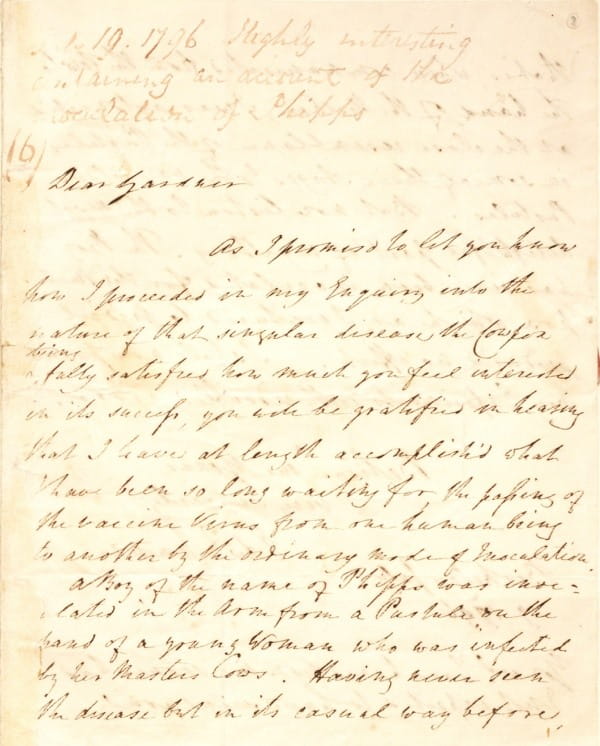 19. 1796 Highly interesting
containing an account of the
inoculation of Phipps
(6)
Dear Gardner
As I promis'd to let you know
how I proceeded in my Enquiry into the
nature of that singular disease the Cowpox
being
& fully satisfied how much you feel interested
in its success, you will be gratified in hearing
that I have at length accomplish'd what
I have been so long waiting for, the passing of
the vaccine Virus from one human being
to another by the ordinary mode of Inoculation.
A Boy of the name of Phipps was inoc=
ulated in the Arm from a Pustule on the
hand of a young Woman who was infected
by her Masters Cows. Having never seen
the disease but in its casual way before,